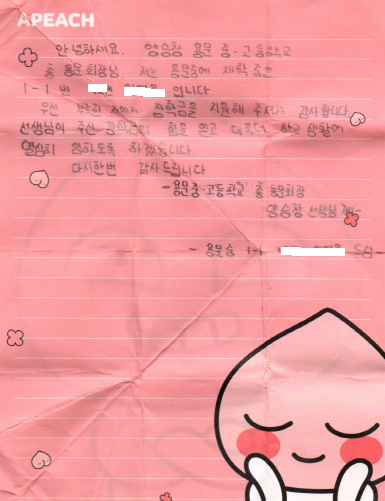 APEACH
안녕하세요. 양승창 용문 중·고등학교
총 동문회장님, 저는 용문중에 재학 중인
1-1 번 입니다
우선 저에게 장학금을 지원해 주셔서 감사합니다.
선생님이 주신 장학금의 힘을 얻고 더욱더 학교 생활에
열심히 임하도록 하겠습니다
다시한번 감사드립니다
-용문중·고등학교 총 동문회장
양승창 선생님께-
- 용문중 1-1 드림-